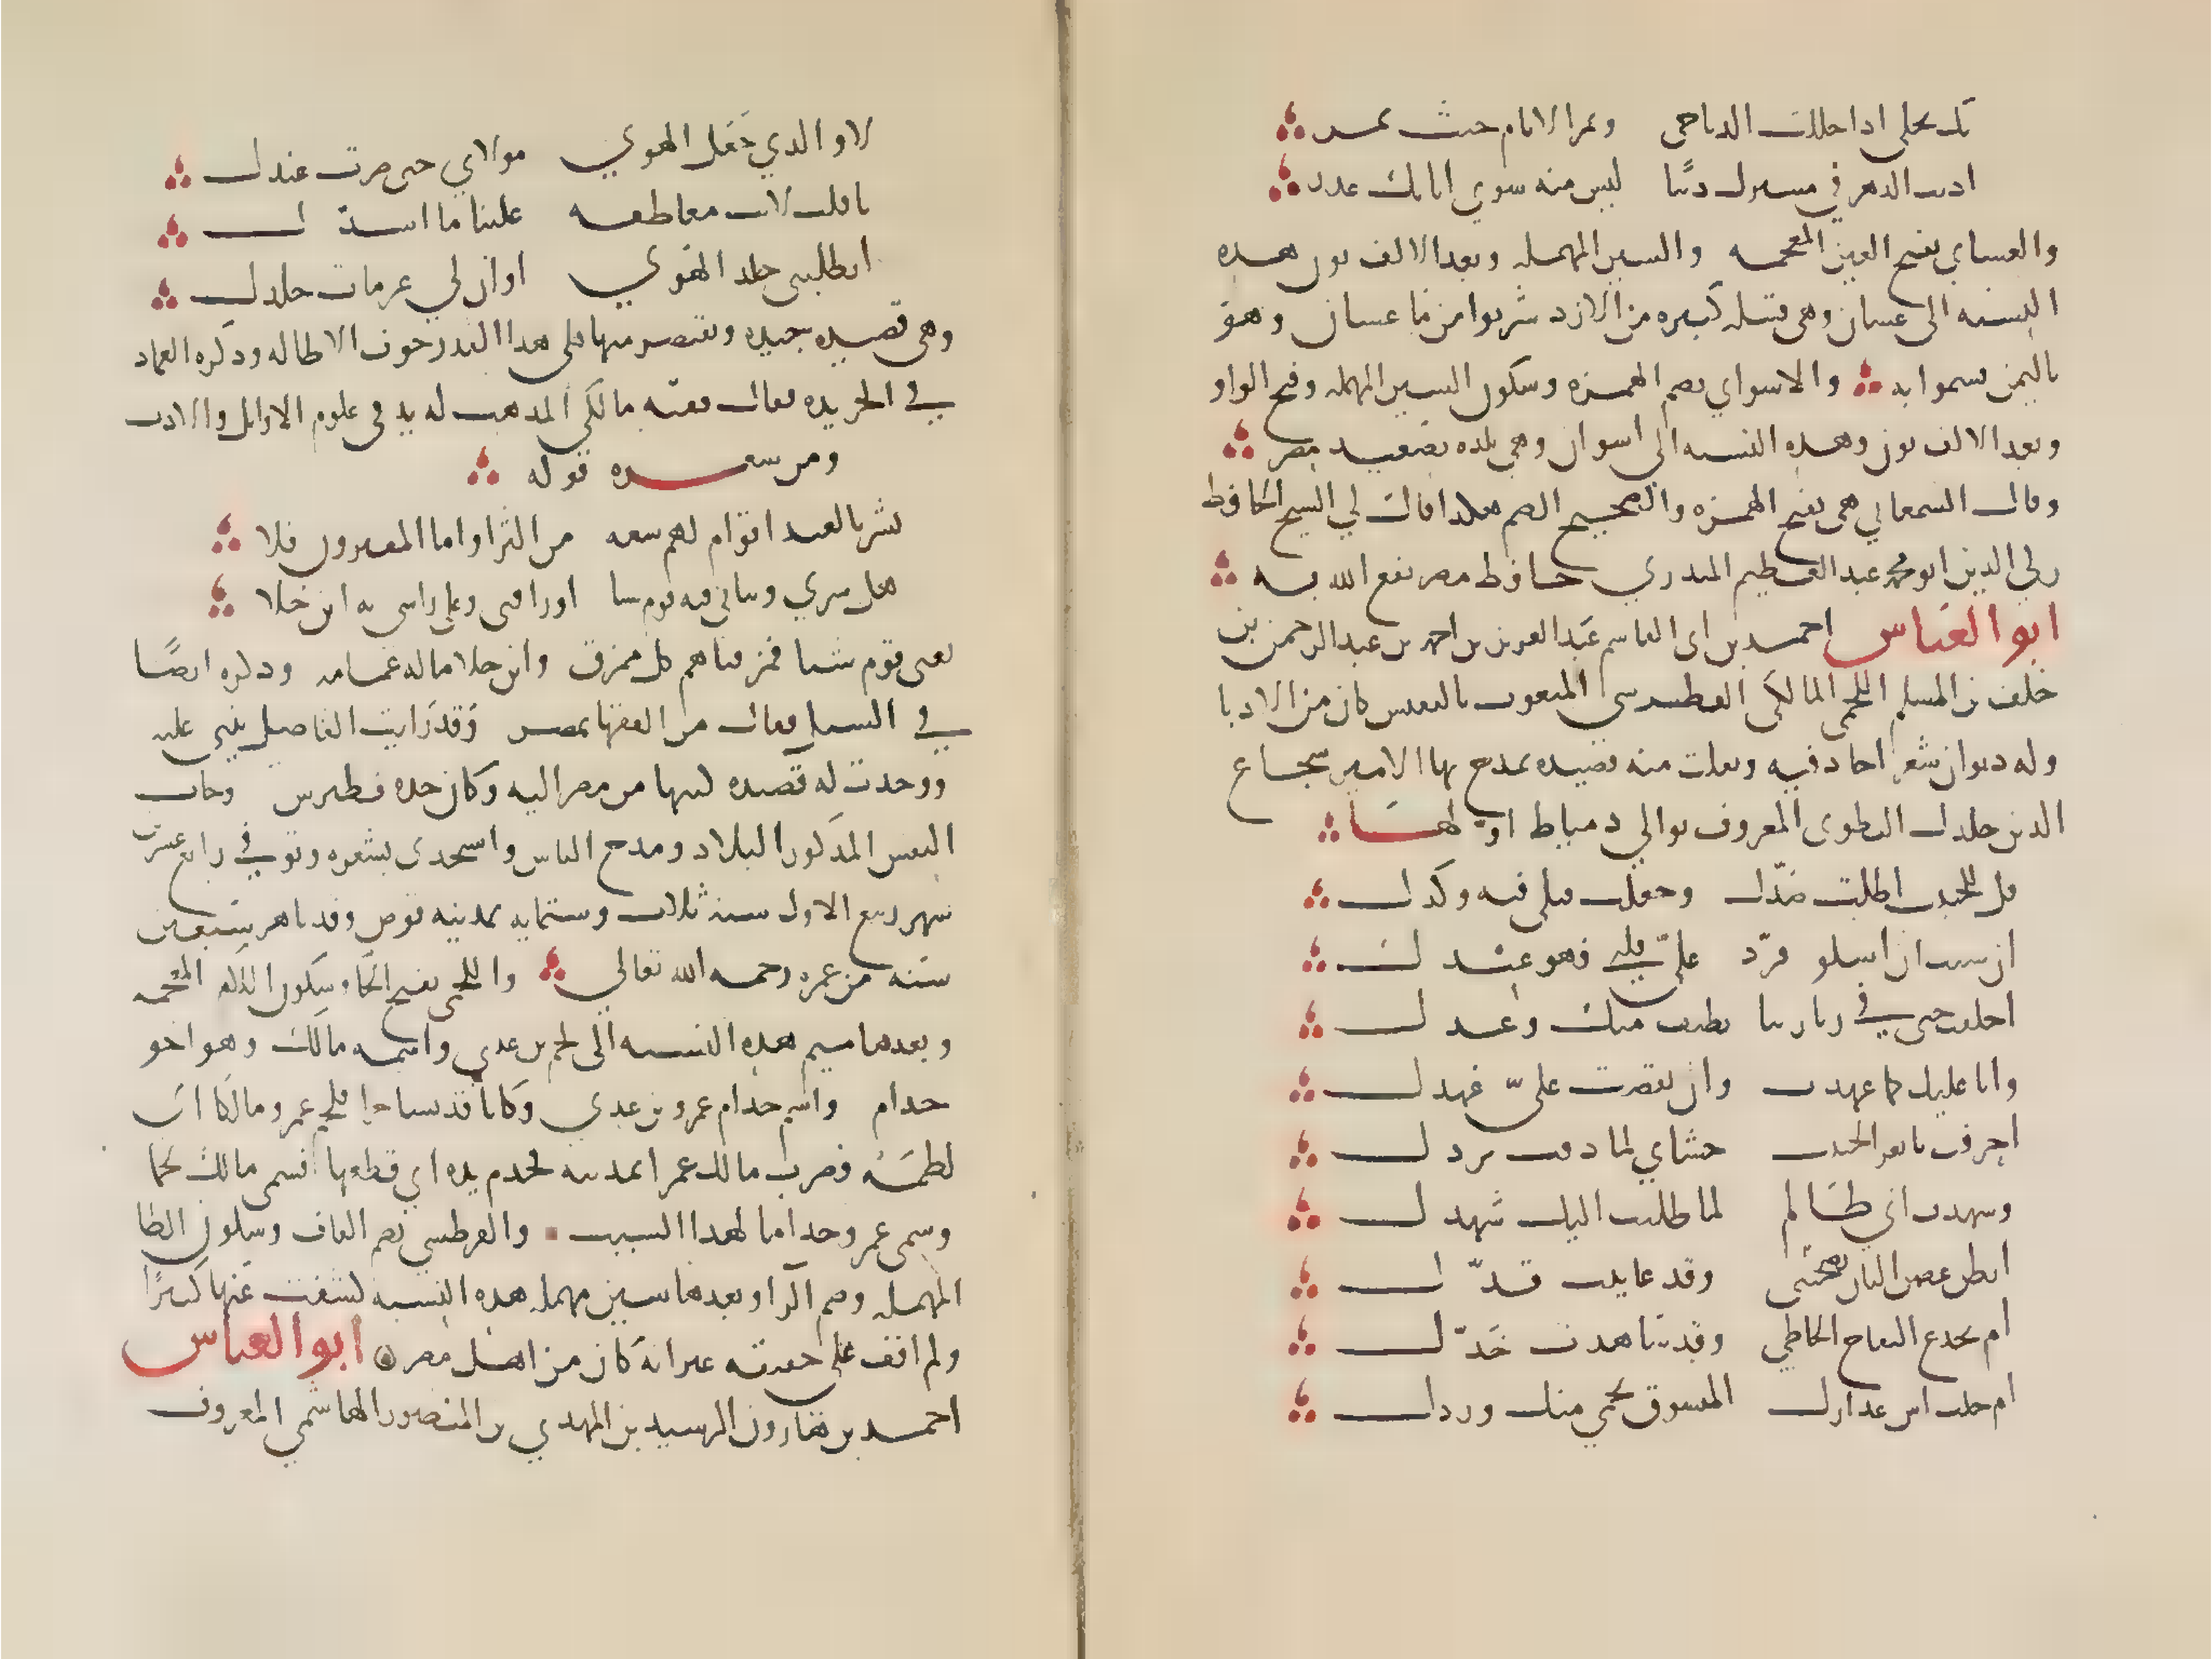 بك يحلى اذا حللت الدياجي وتمر الايام حيث تمر
اذنب الدهر في مسيرك ذنبا ليس منه سوي ايابك عذر
والغساني بفتح الغين المعجمه والسين المهمله وبعد الالف نون هذه
النسبه الى غسان وهي قبيله كبيره من الازد شربوا من ما غسان وهو
باليمن فسموا به والاسواني بضم الهمزه وسكون السين المهمله وفتح الواو
وبعد الالف نون وهذه النسبه الى اسوان وهي بلده بصعيد مصر
وقال السمعاني هي بفتح الهمزه والصحيح الضم هكذا قال لي الشيخ الحافظ
زكي الدين ابو محمد عبد العظيم المنذري حافظ مصر نفع الله به
ابو العباس احمد بن ابي القاسم عبد العزيز بن احمد بن عبد الرحمن بن
خلف بن المسلم اللخمي المالكي القطرسي المنعوت بالنفيس كان من الادبا
وله ديوان شعر اجاد فيه ونقلت منه قصيده يمدح بها الامير شجاع
الدين جلدك التقوى المعروف بوالي دمياط اولها
قل للحبيب اطلت صدك وجعلت قتلي فيه وكدك
ان شيت ان اسلو فرد علي قلبي فهو عندك
اخلفت حتى في زيارتنا بطيف منك وعدك
وانا عليك كما عهدت وان نقضت علي عهدك
احرقت يا ثغر الحبيب حشاي لما ذقت بردك
وشهدت اني ظالم لما طلبت اليك شهدك
اتظن غصن البان يعجبني وقد عاينت قدك
ام يخدع التفاح الحاظي وقد شاهدت خدك
ام خلت اس عذارك المعشوق يحمي منك وردك
لا والذي جعل الهوي مولاي حتى صرت عبدك
يا قلب لانت معاطفه علينا ما اشدك
اتظنني جلد الهوي او ان لي عزمات جلدك
وهي قصيده جيده ونقتصر منها على هذا القدر خوف الاطاله وذكره العماد
في الخريده فقال فقيه مالكي المذهب له يد في علوم الاوائل والادب
ومن شعره قوله
يسر بالعيد اقوام لهم سعه من الثرا واما المقترون فلا
هل سرني وثيابي فيه قوم سبا او راقني وعلى راسي به ابن جلا
يعني قوم سبا مزقناهم كل ممزق وابن جلا ماله عمامه وذكره ايضا
في السيل فقال من الفقها بمصر وقد رايت القاضي الفاضل يثني عليه
ووجدت له قصيده كتبها من مصر اليه وكان جده قطرس وجاب
النفيس المذكور البلاد ومدح الناس واستجدى بشعره وتوفي في رابع عشري
شهر ربيع الاول سنه ثلاث وستمايه بمدينه قوص وقد ناهز سبعين
سنه من عمره رحمه الله تعالي واللخمي بفتح اللام وسكون الخا المعجمه
وبعدها ميم هذه النسبه الى لخم بن عدي واسمه مالك وهو اخو
جذام واسم جذام عمرو بن عدي وكانا قد تشاجرا فلخم عمرو مالكا اي
لطمه فضرب مالك عمرا بمديه فجذم يده اي قطعها فسمي مالك لخما
وسمي عمرو جذاما لهذا السبب والقطرسي بضم القاف وسكون الطا
المهمله وضم الرا وبعدها سين مهمله هذه النسبه كشفت عنها كثيرا
ولم اقف على حقيقه غير انه كان من اهل مصر ابو العباس
احمد بن هارون الرشيد بن المهدي بن المنصور الهاشمي المعروف